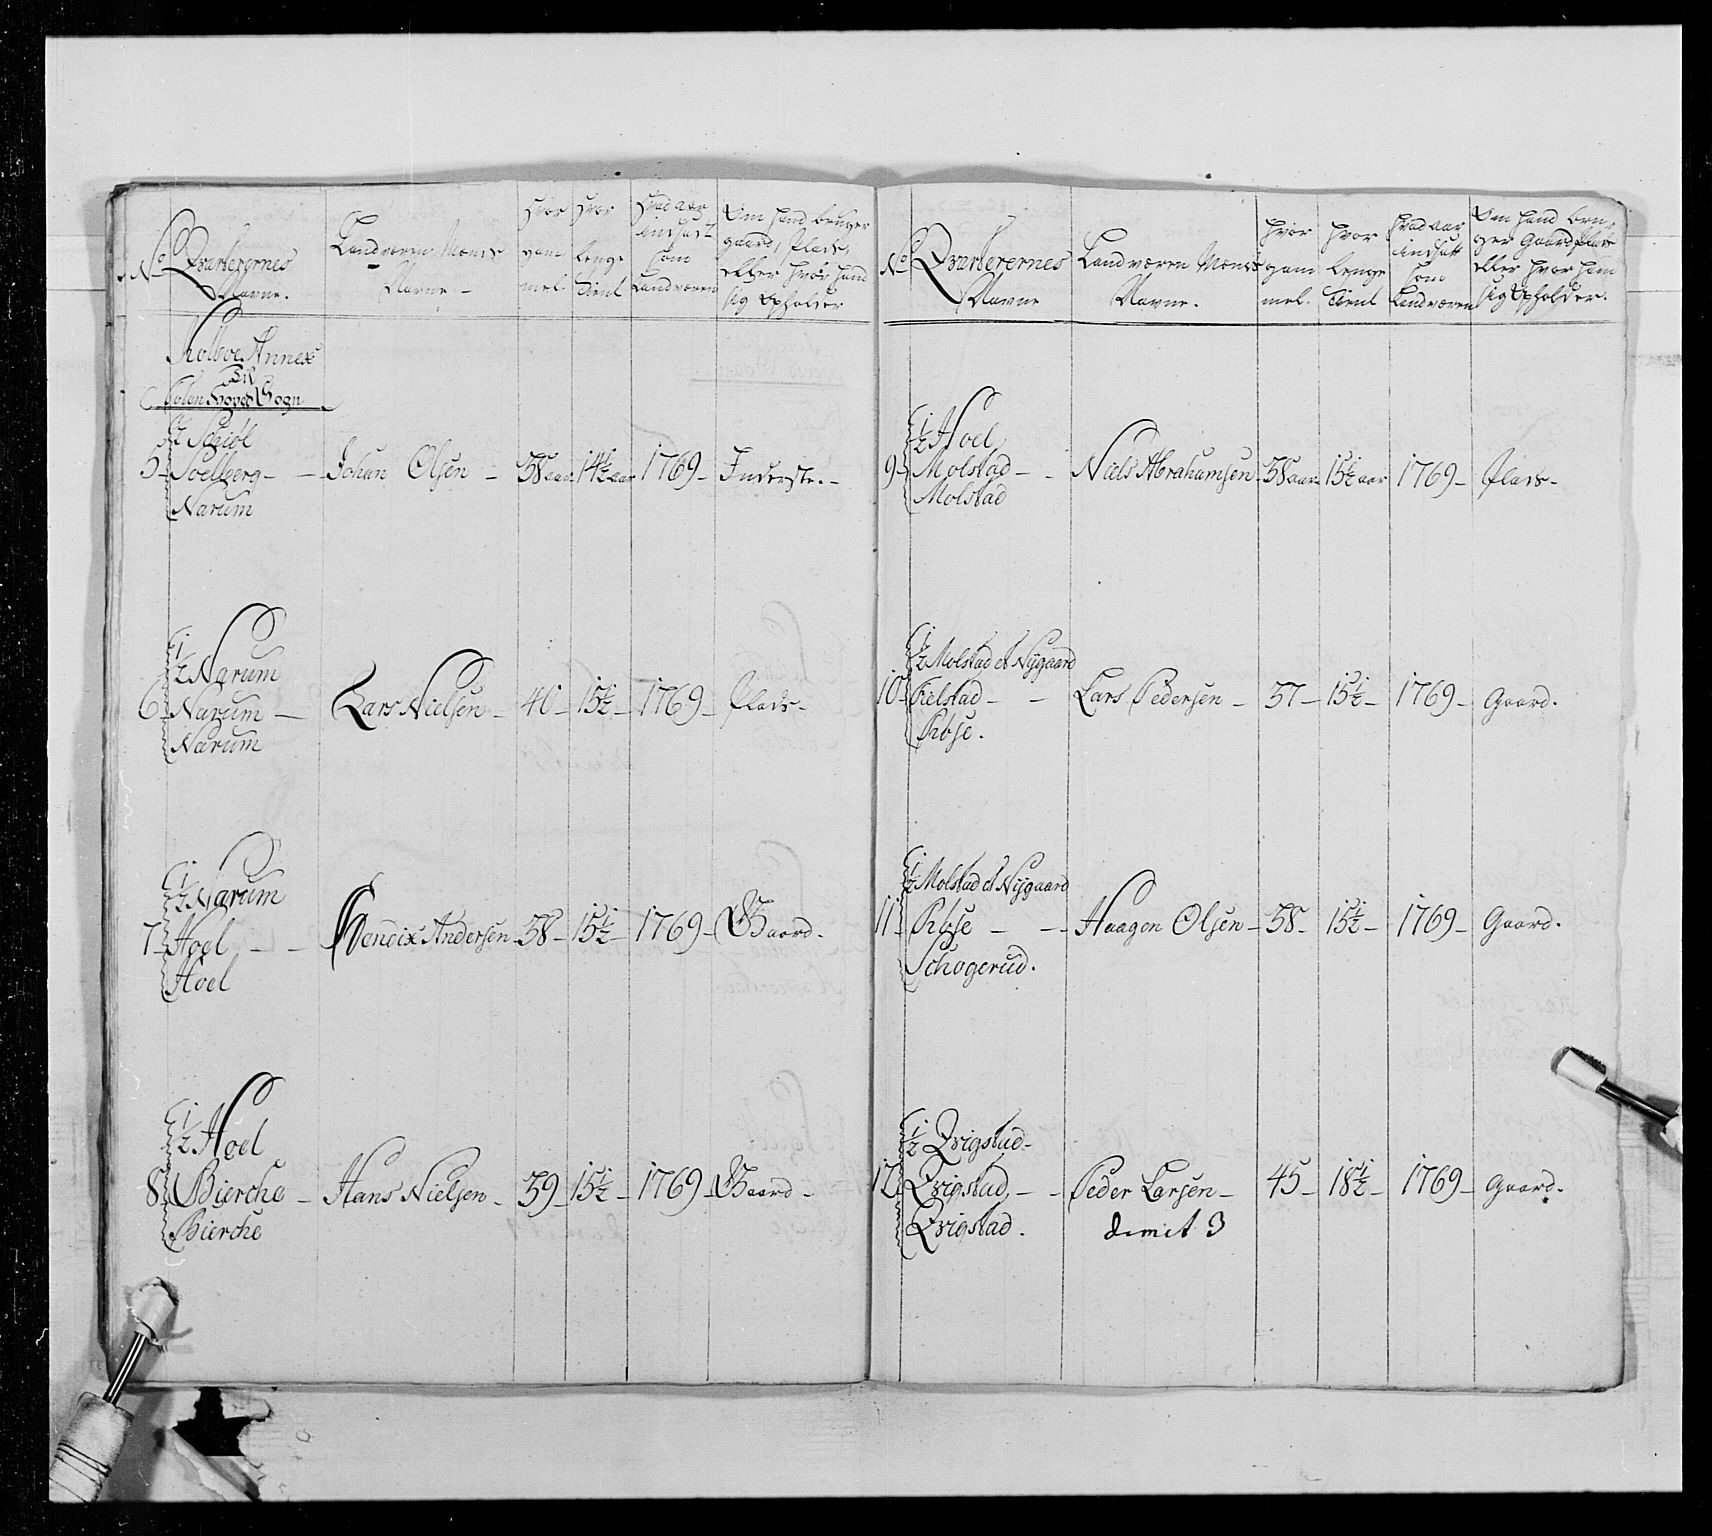 No
Qvarterernes
Navne.
Landværen Mænds
Navne -
Hvor
gam
mel.
Hvor
lenge
tient
Hvad aar
indsat
som
Landværen
Om hand bruger
gaard, Plads,
eller hvor hand
sig opholder
Kolboe Annex
til
Sogn
5 -
1/2
Soelberg - -
Narum
Johan Olsen -
38 aar
14 1/2 aar
1769 -
Inderste. -
6 -
1/2 Narum
Narum -
Narum
Lars Nielsen -
40 -
15 1/2 -
1769 -
Plads -
7 -
1/2 Narum
Hoel - -
Hoel
Hendrix Andersen
38 -
15 1/2 -
1769 -
Gaard -
8
1/2 Hoel
Bierche -
Bierche
Hans Nielsen -
39 -
15 1/2 -
1769 -
Gaard -
No
Qvarterernes
Navne
Landværen Mænds
Navne.
hvor
gam
mel.
hvor
lenge
tient
hvad aar
indsatt
som
Landværen
Om hand bru-
ger Gaard Plads
eller hvor ham
sig opholder.
9 -
1/2 Hoel
Molstad - -
Molstad
Niels Abrahamsen
38 aar
15 1/2 aar
1769 -
Plads -
10 -
1/2 Molstad et Nÿgaard
Fielstad - -
Røise.
Lars Pedersen -
37 -
15 1/2 -
1769 -
Gaard.
11 -
1/2 Molstad et Nÿgaard
- -
Schogerud.
Haagen Olsen -
38 -
15 1/2 -
1769 -
Gaard.
12
1/2 Qvigstad -
Qvigstad - -
Qvigstad.
Peder Larsen -
dimit 3
45 -
18 1/2 -
1769 -
Gaard.